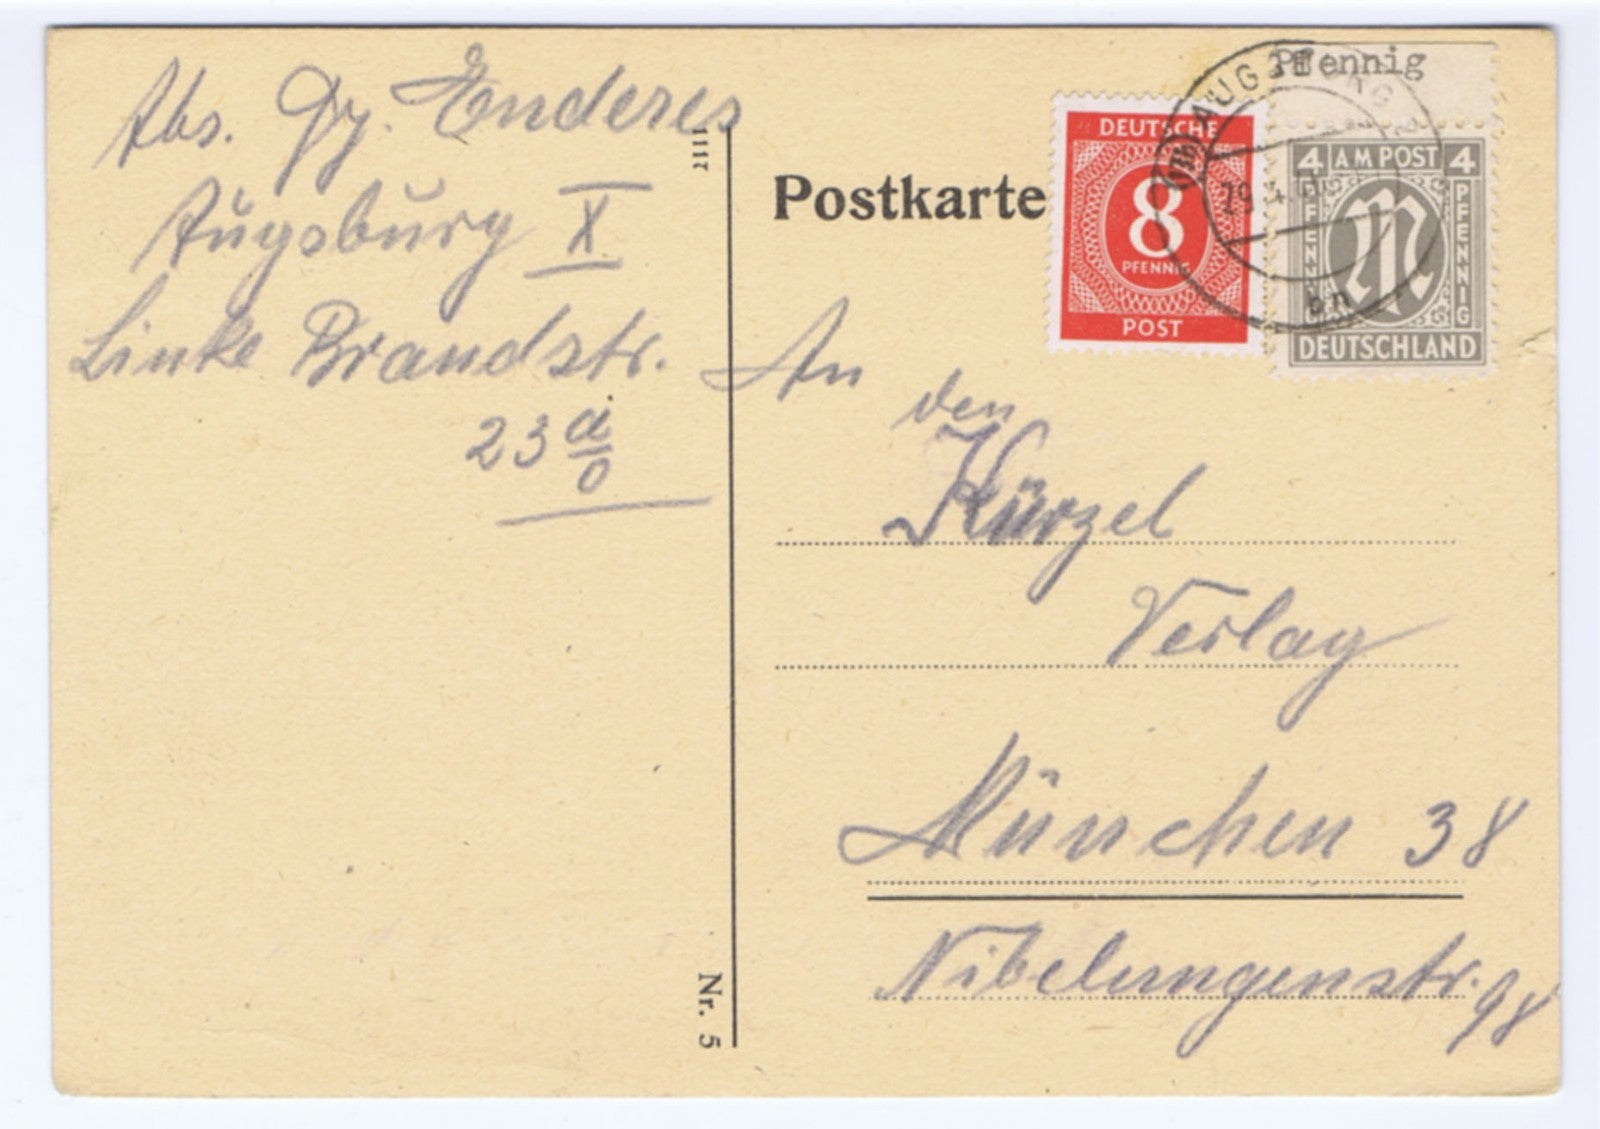 Abs. Gg. Enderes
Augsburg X
Linke Brandstr.
23 a/0
1117
Nr. 5
Postkarte
DEUTSCHE
8
PFENNIG
POST
Pfennig
AUGSBURG
29.4.
bn
4 AM POST 4
PFENNIG
PFENNIG
DEUTSCHLAND
An
den
Kürzel
Verlag
München 38
Nibelungenstr. 98